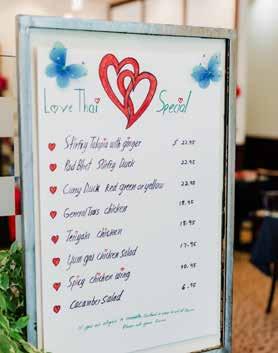 Love Thai Special
Stirfry Talapia with ginger $ 22.95
Pad Bhet Stirfry Duck 22.95
Curry Duck Red green or yellow 22.95
General Taos chicken 18.95
Teriyaki chicken 18.95
Yum gai chicken salad 17.95
Spicy chicken wing 10.95
Cucumber salad 6.95
If you are allergic to